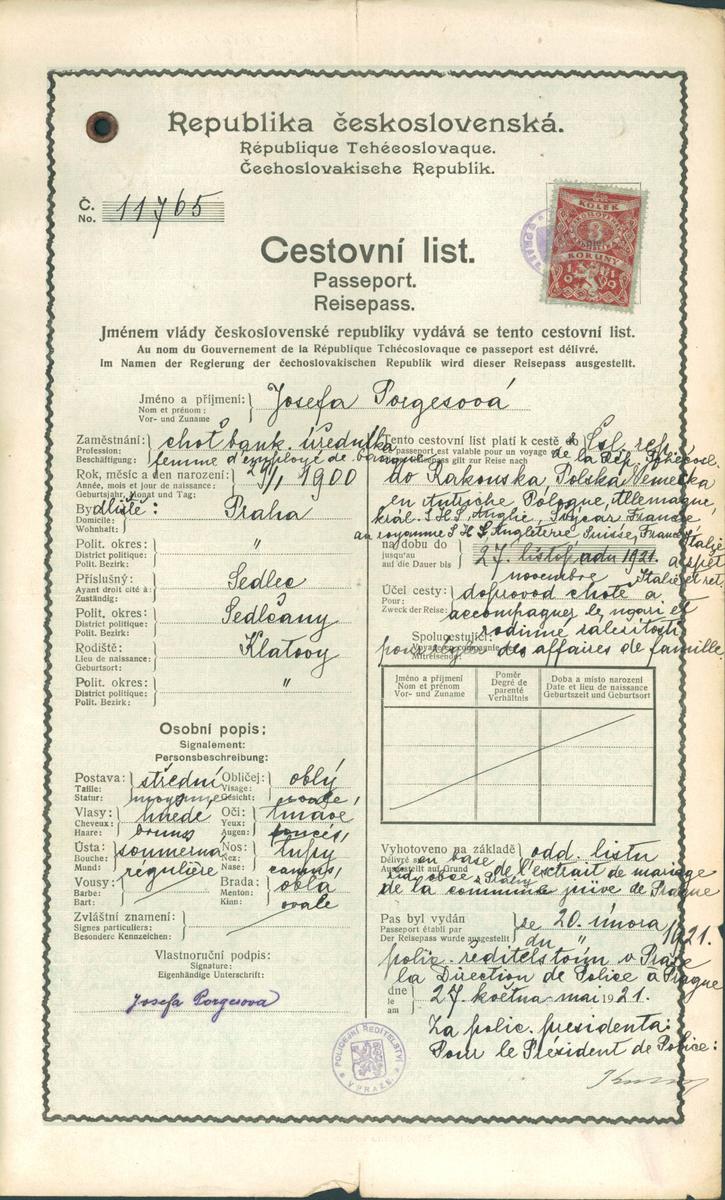 Republika československá.
République Tchécoslovaque.
Čechoslovakische Republik.
Č.
No. 11765
KOLEK
3
KORUNY
1919
Cestovní list.
Passeport.
Reisepass.
Jménem vlády československé republiky vydává se tento cestovní list.
Au nom du Gouvernement de la République Tchécoslovaque ce passeport est délivré.
Im Namen der Regierung der čechoslovakischen Republik wird dieser Reisepass ausgestellt.
Jméno a příjmení: Josefa Porgesová
Nom et prénom:
Vor- und Zuname
Zaměstnání: choť bank. úředníka
Profession:
Beschäftigung: femme d'employé de banque
Rok, měsíc a den narození: 1900
Année, mois et jour de naissance:
Geburtsjahr, Monat und Tag:
Bydliště: Praha
Domicile:
Wohnhaft:
Polit. okres: "
District politique:
Polit. Bezirk:
Příslušný: Sedlec
Ayant droit cité à:
Zuständig:
Polit. okres: Sedlčany
District politique:
Polit. Bezirk:
Rodiště: Klatovy
Lieu de naissance:
Geburtsort:
Polit. okres: "
District politique:
Polit. Bezirk:
Osobní popis:
Signalement:
Personsbeschreibung:
Postava: střední Obličej: oblý
Taille: Visage:
Statur: moyenne Gesicht: ovale
Vlasy: hnědé Oči: tmavé
Cheveux: Yeux:
Haare: bruns Augen: foncés,
Ústa: souměrná Nos: tupý
Bouche: Nez:
Mund: régulière Nase: camus,
Vousy: Brada: oblá
Barbe: Menton:
Bart: Kinn: ovale
Zvláštní znamení:
Signes particuliers:
Besondere Kennzeichen:
Vlastnoruční podpis:
Signature:
Eigenhändige Unterschrift:
Josefa Porgesová
POLICEJNÍ ŘEDITELSTVÍ V PRAZE.
Tento cestovní list platí k cestě z Čsl. rep.
passeport est valable pour un voyage de la Rép. Tchécosl.
Reisepass gilt zur Reise nach
do Rakouska, Polska, Německa
en Autriche, Pologne, Allemagne,
král. S.H.S., Anglie, Švýcar, Francie
au royaume S.H.S., Angleterre, Suisse, France, Italie
na dobu do 27. listopadu 1921. a zpět
jusqu'au
auf die Dauer bis novembre Italie et ret.
Účel cesty: doprovod chotě a
Pour:
Zweck der Reise: accompagner le mari et
Spolucestující: rodinné záležitosti
Voyage en compagnie
Mitreisende: pour régler des affaires de famille
Jméno a příjmení Poměr Doba a místo narození
Nom et prénom Degré de Date et lieu de naissance
Vor- und Zuname parenté Geburtszeit und Geburtsort
Verhältnis
Vyhotoveno na základě odd. listu
Délivré sur
Ausgestellt auf Grund en base de l'extrait de mariage
de la commune juive de Prague
Pas byl vydán se 20. února 1921.
Passeport établi par
Der Reisepass wurde ausgestellt du "
polic. ředitelstvím v Praze
la Direction de Police à Prague
dne
le 27 května-mai 1921.
am
Za polic. presidenta:
Pour le Président de Police: